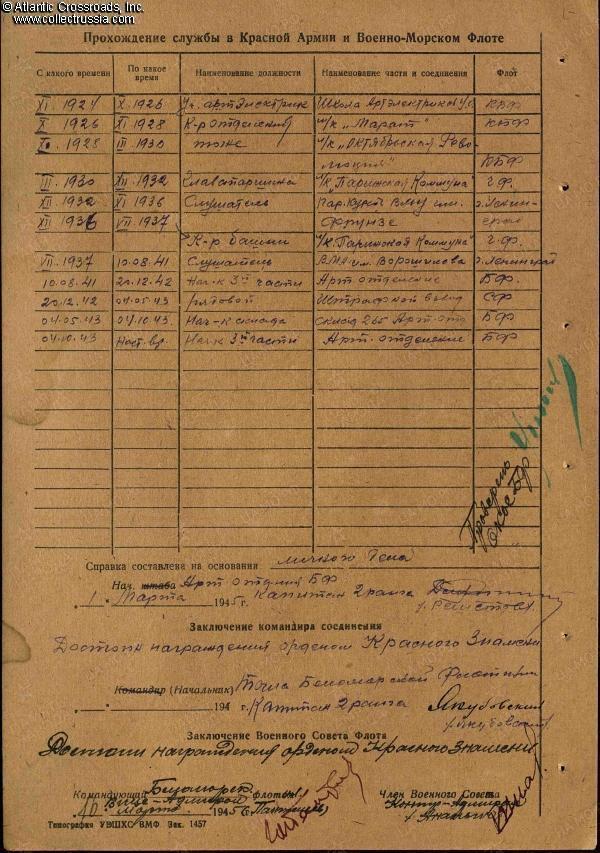 © Atlantic Crossroads, Inc.
www.collectrussia.com
Прохождение службы в Красной Армии и Военно-Морском Флоте
С какого времени По какое время Наименование должности Наименование части и соединения Флот
XI. 1924 X. 1926 Уч. артэлектрик Школа Артэлектриков
X 1926 XI 1928 К-р отделения л/к „Марат“
1928 III 1930 тоже л/к „Октябрьская Рево-
люция“ КБФ
III 1930 XII 1932 Главстаршина л/к „Парижская Коммуна“ Ч.Ф.
XII 1932 XI 1936 Слушатель им.
XII 1936 VII 1937 Фрунзе
К-р башни л/к „Парижская Коммуна“ Ч.Ф.
VII 1937 10.08.41 Слушатель ВМА им. Ворошилова г. Ленинград
10.08.41 20.12.42 Нач-к 3й части Арт отделение БФ
20.12.42 04.05.43 рядовой Штрафной взвод СФ
04.05.43 04.10.43 Нач-к склада склад 265 Арт. отд БФ
04.10.43 Наст. вр. Нач-к 3й части Арт. отделение БФ
Проверено
Справка составлена на основании личного дела
Нач. штаба Арт отделения БФ
„1“ Марта 1945 г. Капитан 2 ранга
Заключение командира соединения
Достоин награждения орденом Красного Знамени
Командир (Начальник) Тыла Беломорской Флотилии
194 г. Капитан 2 ранга Якубовский
/Якубовский
Заключение Военного Совета Флота
Достоин награждения орденом Красного Знамени
Командующий Беломорск. флотил. Член Военного Совета
Вице-Адмирал Контр-Адмирал
„10“ Марта 1945
Типография УВШХС ВМФ Зак. 1457